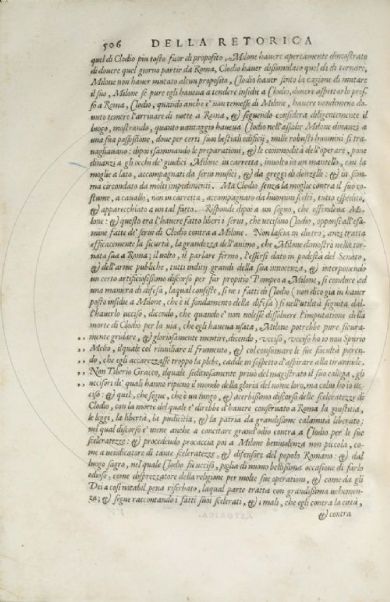 506 DELLA RETORICA
quel di Clodio piu tosto fuor di proposito. Milone havere apertamente dimostrato
di dovere quel giorno partir da Roma, Clodio haver dissimulato quel di di tornare,
Milone non haver mutato alcun proposito, Clodio haver finto la cagione di mutare
il suo, Milone se pure egli haveva a tendere insidie a Clodio, dovere aspettarlo pres-
so a Roma, Clodio, quando anche e' non temesse di Milone, havere nondimeno do-
vuto temere l'arrivare di notte a Roma, & seguendo considera diligentemente il
luogo, mostrando, quanto vantaggio haveva Clodio nell'assalir Milone dinanzi a
una sua possessione, dove per certi suoi bestiali edificij, mille robusti huomini si tra-
vagliavano: dipoi esaminando le preparationi, & le commodità dell'operare, pone
dinanzi a gli occhi de' giudici Milone in carretta, involto in un mantello, con la
moglie a lato, accompagnati da servi musici, & da greggi di donzelle: & in som-
ma circondato da molti impedimenti. Ma Clodio senza la moglie contra il suo co-
stume, a cavallo, non in carretta, accompagnato da huomini scelti, tutto espedito,
& apparecchiato a un tal fatto. Risponde dipoi a un segno, che offendeva Mi-
lone: & questo era l'havere fatto liberi i servi, che uccisono Clodio, opponsi all'esa-
mine fatte de' servi di Clodio contra a Milone. Non lascia in dietro, anzi tratta
efficacemente la sicurtà, la grandezza dell'animo, che Milone dimostrò nella tor-
nata sua a Roma; il volto, il parlare fermo, l'essersi dato in podestà del Senato,
& dell'arme publiche, tutti indicij grandi della sua innocenza, & interponendo
un certo artificiosissimo discorso per far propitio Pompeo a Milone, si conduce ad
una maniera di difesa, laqual consiste, se ne i fatti di Clodio (non dico gia in haver
posto insidie a Milone, che è il fondamento della difesa) si ne l'utilità seguita dal-
l'haverlo ucciso, dicendo, che quando e' non volesse dissolvere l'imputatione della
morte di Clodio per la via, che egli haveva usata, Milone potrebbe pure sicura-
mente gridare, & gloriosamente mentire, dicendo, ucciso, ucciso ho io non Spurio
Melio, ilquale col rinviliare il frumento, & col consumare le sue facultà paren-
do, che egli accarezzasse troppo la plebe, cadde in sospetto d'aspirare alla tirannide.
Non Tiberio Gracco, ilquale seditiosamente privò del magistrato il suo collega, gli
uccisori de' quali hanno ripieno il mondo della gloria del nome loro, ma colui ho io uc-
ciso: & quel, che segue, che è un lungo, & acerbissimo discorso delle sceleratezze di
Clodio, con la morte del quale e' direbbe d'havere conservato a Roma la giustitia,
le leggi, la libertà, la pudicitia, & la patria da grandissime calamità liberato;
nel qual discorso e' viene anche a concitare grand'odio contra a Clodio per le sue
sceleratezze: & procedendo procaccia poi a Milone benivolenza non piccola, co-
me a vendicatore di tante sceleratezze, & difensore del popolo Romano: & dal
luogo sagro, nel quale Clodio fu ucciso, piglia di nuovo bellissima occasione di farlo
odioso, come disprezzatore della religione per molte sue operationi, & come da gli
Dei a cosi notabil pena riserbato, laqual parte tratta con grandissima vehemen-
za; & segue raccontando i fatti suoi scelerati, & i mali, che egli contra la città,
& contra